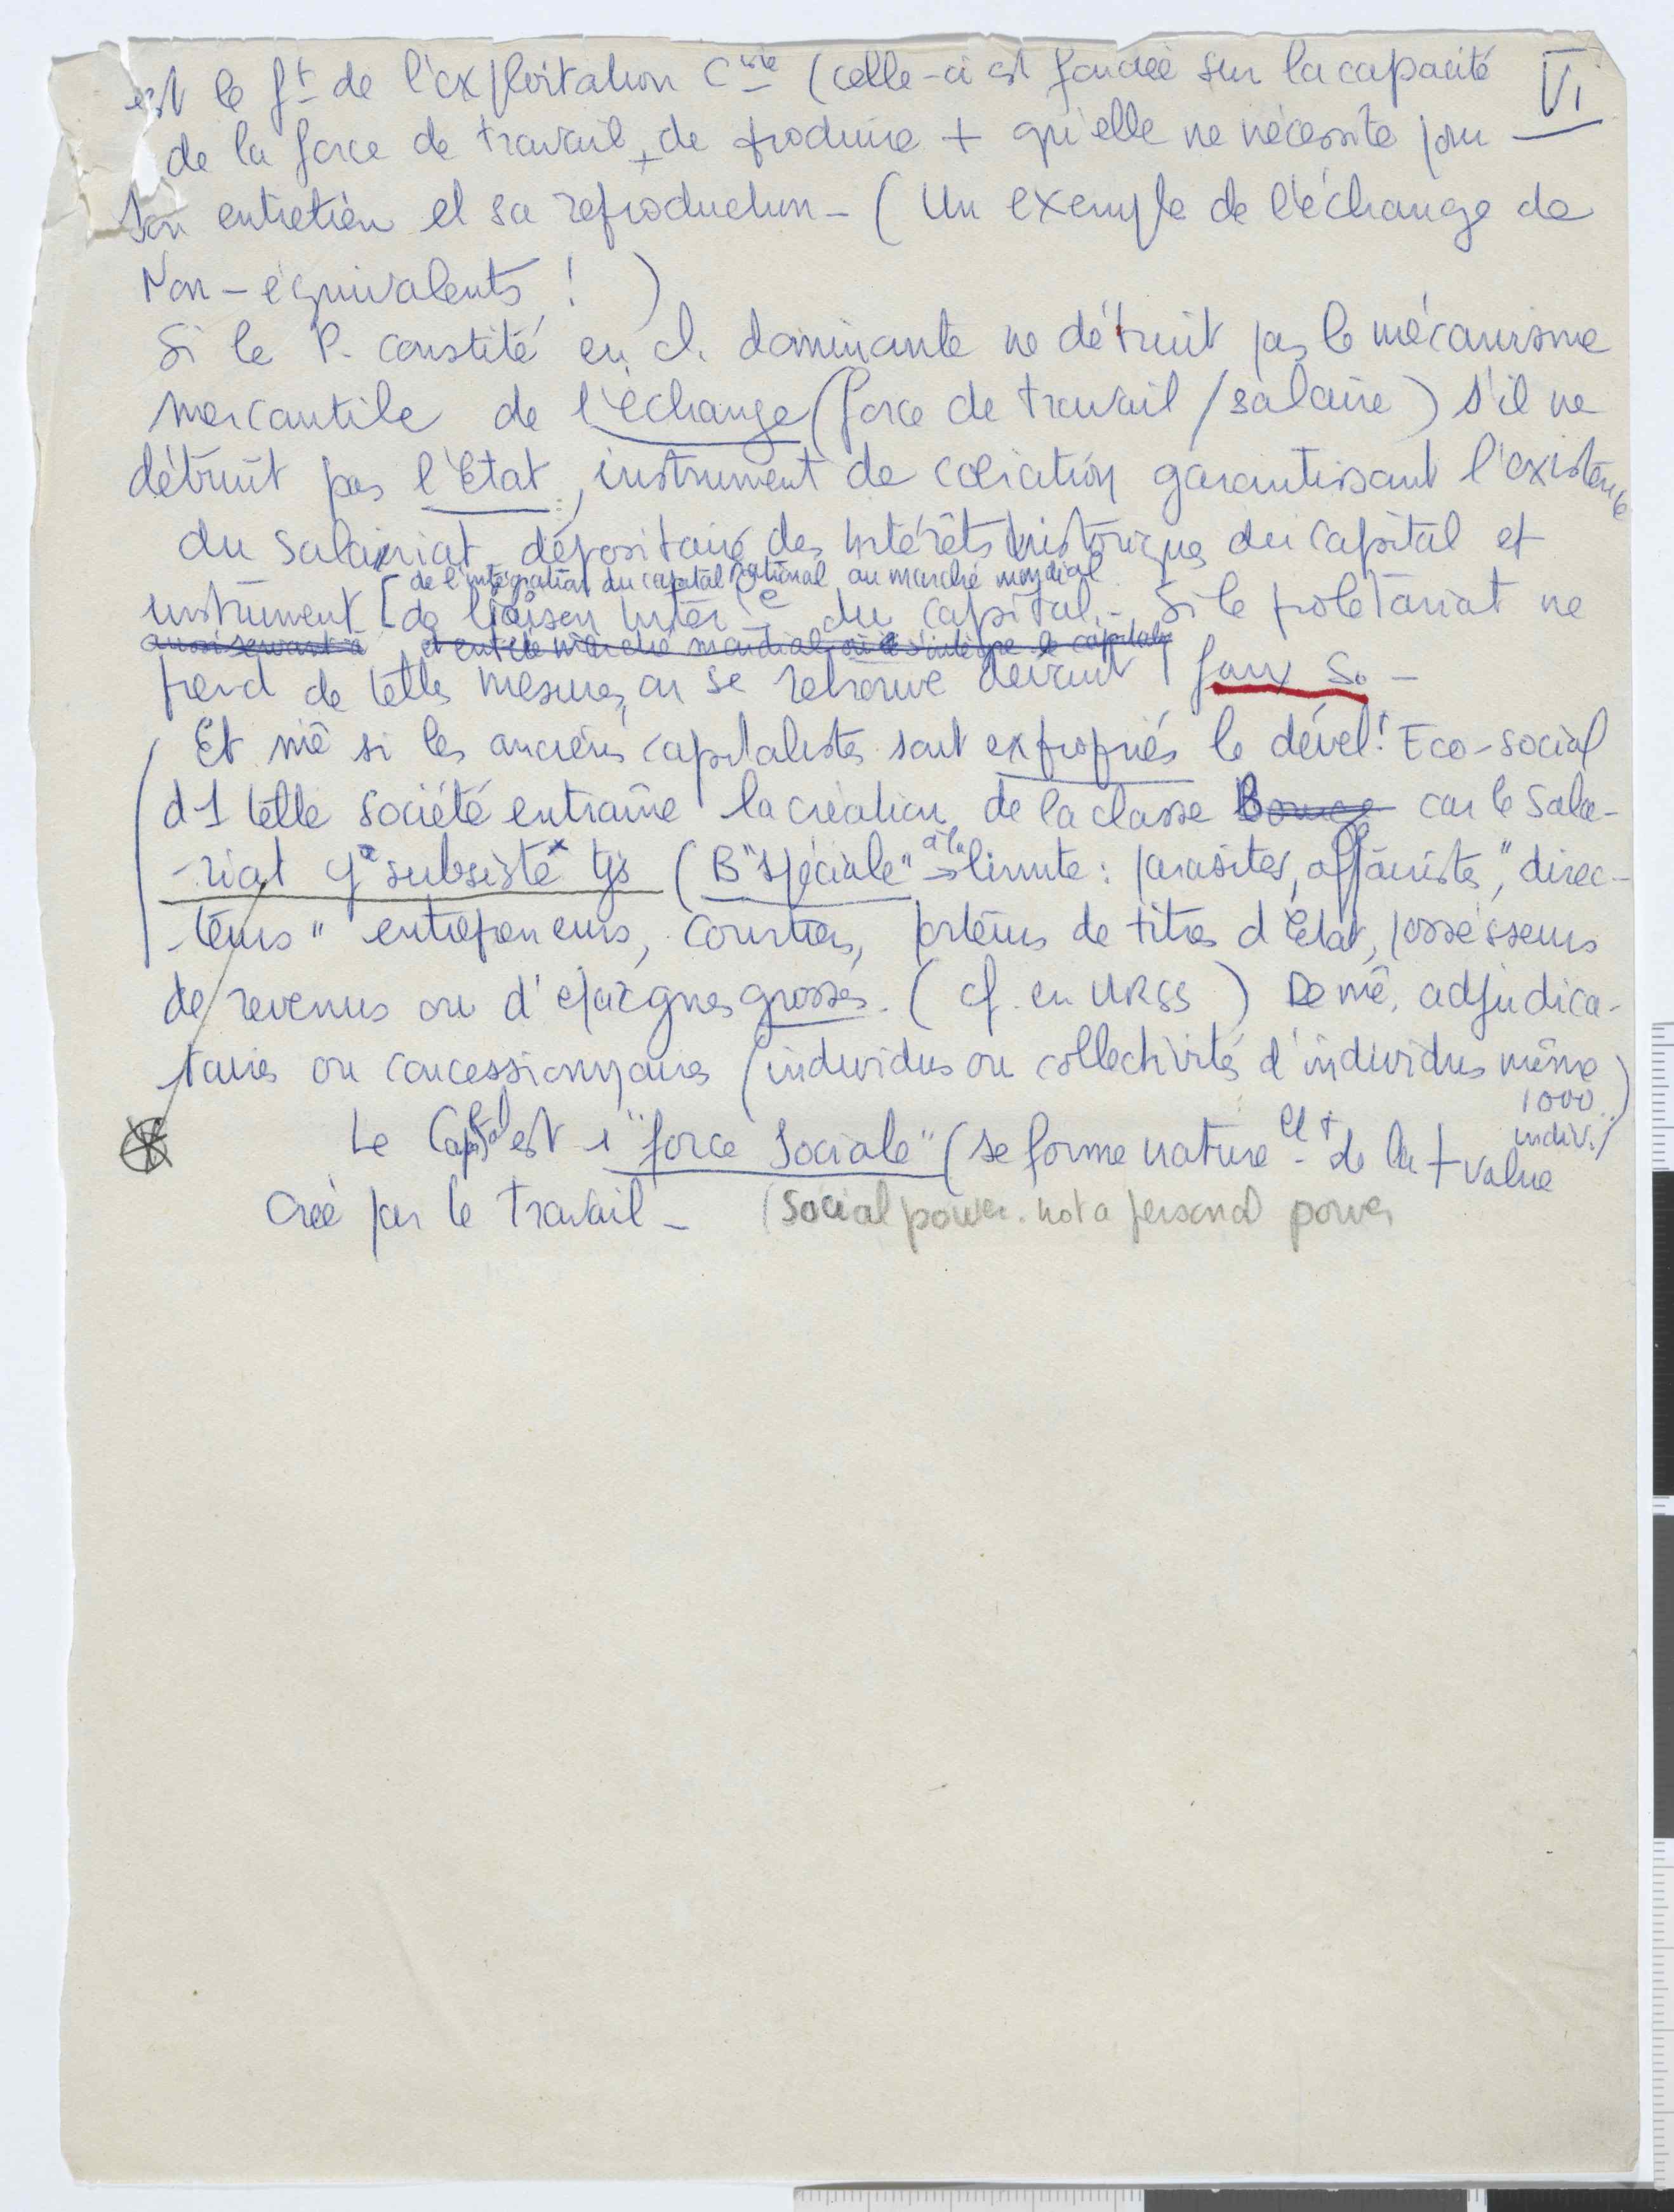 VI
est le f^t de l'exploitation C^iste (celle-ci est fondée sur la capacité
de la force de travail, de produire + qu'elle ne nécessite pour
son entretien et sa reproduction - ( Un exemple de l'échange de
Non-équivalents ! )
Si le P. constité en cl. dominante ne détruit pas le mécanisme
mercantile de l'échange (force de travail / salaire) s'il ne
détruit pas l'Etat, instrument de coërcition garantissant l'existence
du salariat, dépositaire des intérêts historiques du capital et
de l'intégration du capital national au marché mondial
instrument [de liaison inter^e du capital. - Si le prolétariat ne
aussi servant à et entre le marché mondial où s'intègre le capital
prend de telles mesures, on se retrouve devant 1 faux So -
Et mê si les anciens capitalistes sont expropriés le dével^t Eco-social
d1 telle société entraîne la création de la classe Bourge car le sala-
-riat y subsiste tjs (B "spéciale" à la limite : parasites, affairistes, "direc-
-teurs" entrepreneurs, courtiers, porteurs de titres d'Etat, possesseurs
de revenus ou d'épargnes grosses. ( cf. en URSS ) De mê, adjudica-
taires ou concessionnaires (individus ou collectivités d'individus même
1000 indiv.)
Le Capital est 1 "force Sociale" (se forme nature^elt de la + value
créé par le travail - (Social power. not a personal power